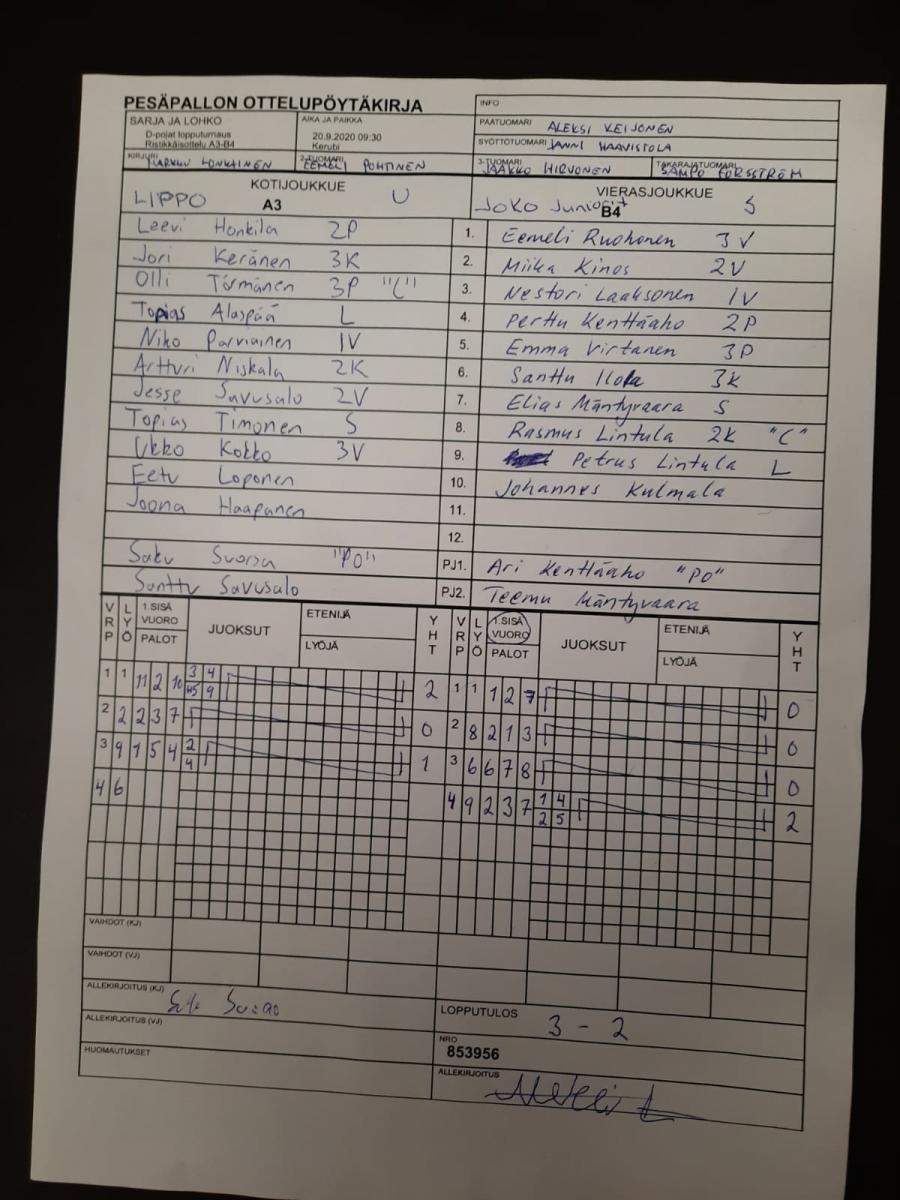 PESÄPALLON OTTELUPÖYTÄKIRJA
INFO
SARJA JA LOHKO
D-pojat lopputurnaus
Ristikkäisottelu A3-B4
AIKA JA PAIKKA
20.9.2020 09:30
Kerubi
PÄÄTUOMARI ALEKSI KEIJONEN
SYÖTTÖTUOMARI JANNI HAAVISTOLA
KIRJURI MARKKU
2-TUOMARI EEMELI POHTINEN
3-TUOMARI JAAKKO HIRVONEN
TAKARAJATUOMARI SAMPO FORSSTRÖM
KOTIJOUKKUE
LIPPO A3 U
VIERASJOUKKUE
JOKO Juniorit B4 S
Leevi Honkila 2P 1. Eemeli Ruohonen 3V
Jori Keränen 3K 2. Miika Kinos 2V
Olli Törmänen 3P "C" 3. Nestori Laaksonen 1V
Topias Alaspää L 4. Perttu Kenttäaho 2P
Niko Parviainen 1V 5. Emma Virtanen 3P
Artturi Niskala 2K 6. Santtu Ilola 3K
Jesse Savusalo 2V 7. Elias Mäntyvaara S
Topias Timonen S 8. Rasmus Lintula 2K "C"
Ukko Kokko 3V 9. Petrus Lintula L
Eetu Loponen 10. Johannes Kulmala
Joona Haapanen 11.
12.
Saku Suorsa "PO" PJ1. Ari Kenttäaho "PO"
Santtu Savusalo PJ2. Teemu Mäntyvaara
VRP LYÖ 1.SISÄ VUORO PALOT JUOKSUT ETENIJÄ LYÖJÄ YHT VRP LYÖ 1.SISÄ VUORO PALOT JUOKSUT ETENIJÄ LYÖJÄ YHT
1 1 11 2 10 3 4 2 1 1 1 2 7 0
9
2 2 2 3 7 0 2 8 2 1 3 0
3 9 1 5 4 2 1 3 6 6 7 8 0
4
4 6 4 9 2 3 7 1 4 2
2 5
VAIHDOT (KJ)
VAIHDOT (VJ)
ALLEKIRJOITUS (KJ)
LOPPUTULOS 3 - 2
ALLEKIRJOITUS (VJ)
NRO
853956
HUOMAUTUKSET
ALLEKIRJOITUS